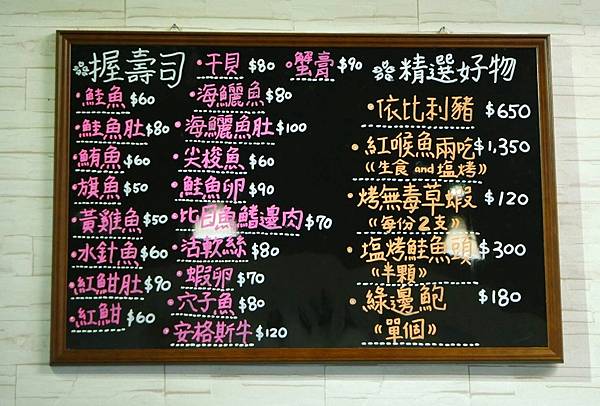 握壽司
·鮭魚$60
·鮭魚肚$80
·鮪魚$60
·旗魚$50
·黃雞魚$50
·水針魚$60
·紅魽肚$90
·紅魽$60
·干貝$80
·海鱺魚$80
·海鱺魚肚$100
·尖梭魚$60
·鮭魚卵$90
·比目魚鰭邊肉$70
·活軟絲$80
·蝦卵$70
·穴子魚$80
·安格斯牛$120
·蟹膏$90
精選好物
·依比利豬$650
·紅喉魚兩吃$1,350
《生食and塩烤》
·烤無毒草蝦$120
《每份2支》
·塩烤鮭魚頭$300
《半顆》
·綠邊鮑$180
《單個》